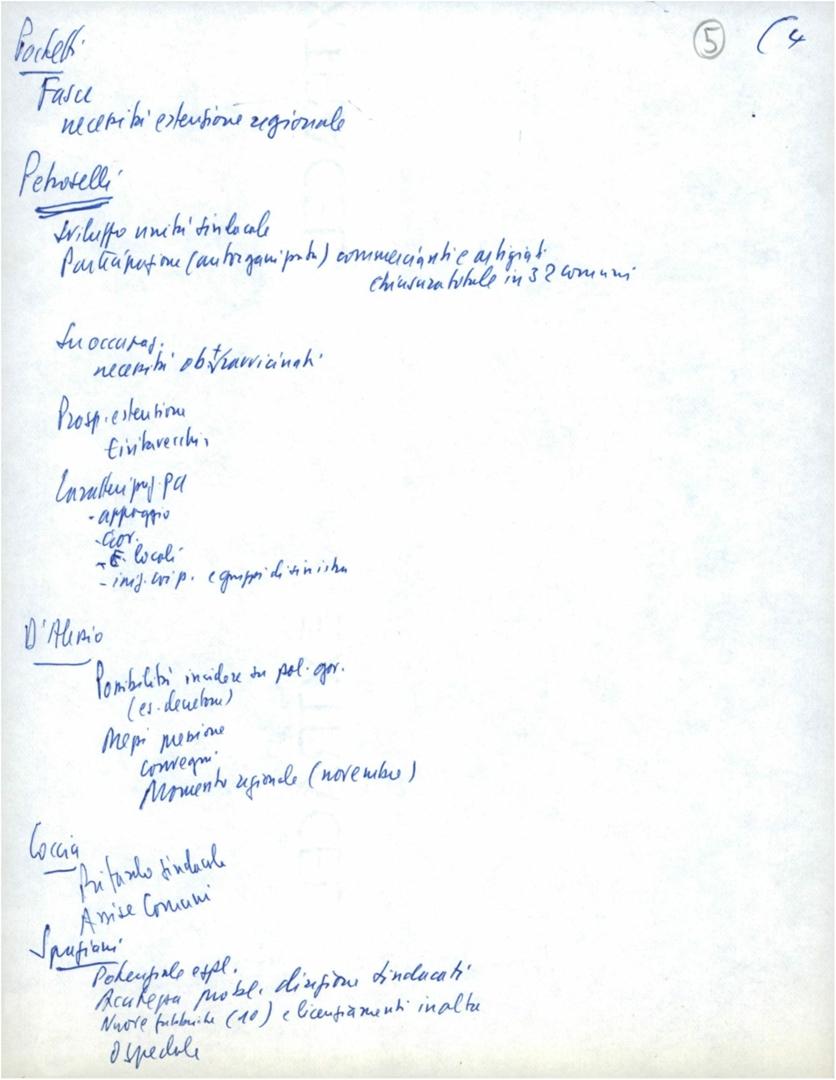 5 (4
Pochetti
Fasce
necessità estensione regionale
Petroselli
sviluppo unità sindacale
Partecipazione (autorganizzata) commercianti e artigiati
chiusura totale in 32 comuni
Su occupaz.
necessità ob ravvicinati
Prosp. estensione
Civitavecchia
Caratteri
- appoggio
- Gov.
- E. locali
- iniz. e gruppi di sinistra
D'Alessio
Possibilità incidere su pol. gov.
(es. decretone)
Mezzi pressione
convegni
Momento regionale (novembre)
Coccia
Ritardo sindacale
Assise Comuni
Spaziani
Potenziale espl.
Acutezza probl. direzione sindacati
Nuove fabbriche (10) e licenziamenti in altre
Ospedale